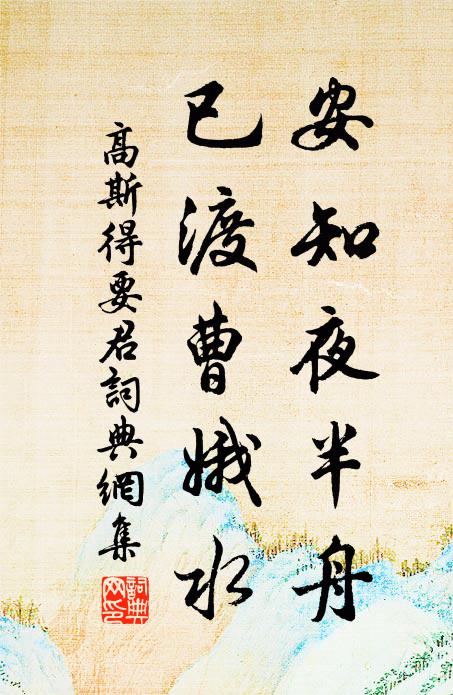 安知夜半舟
已渡曹娥水
高斯得要君詞典網集
詞典網印